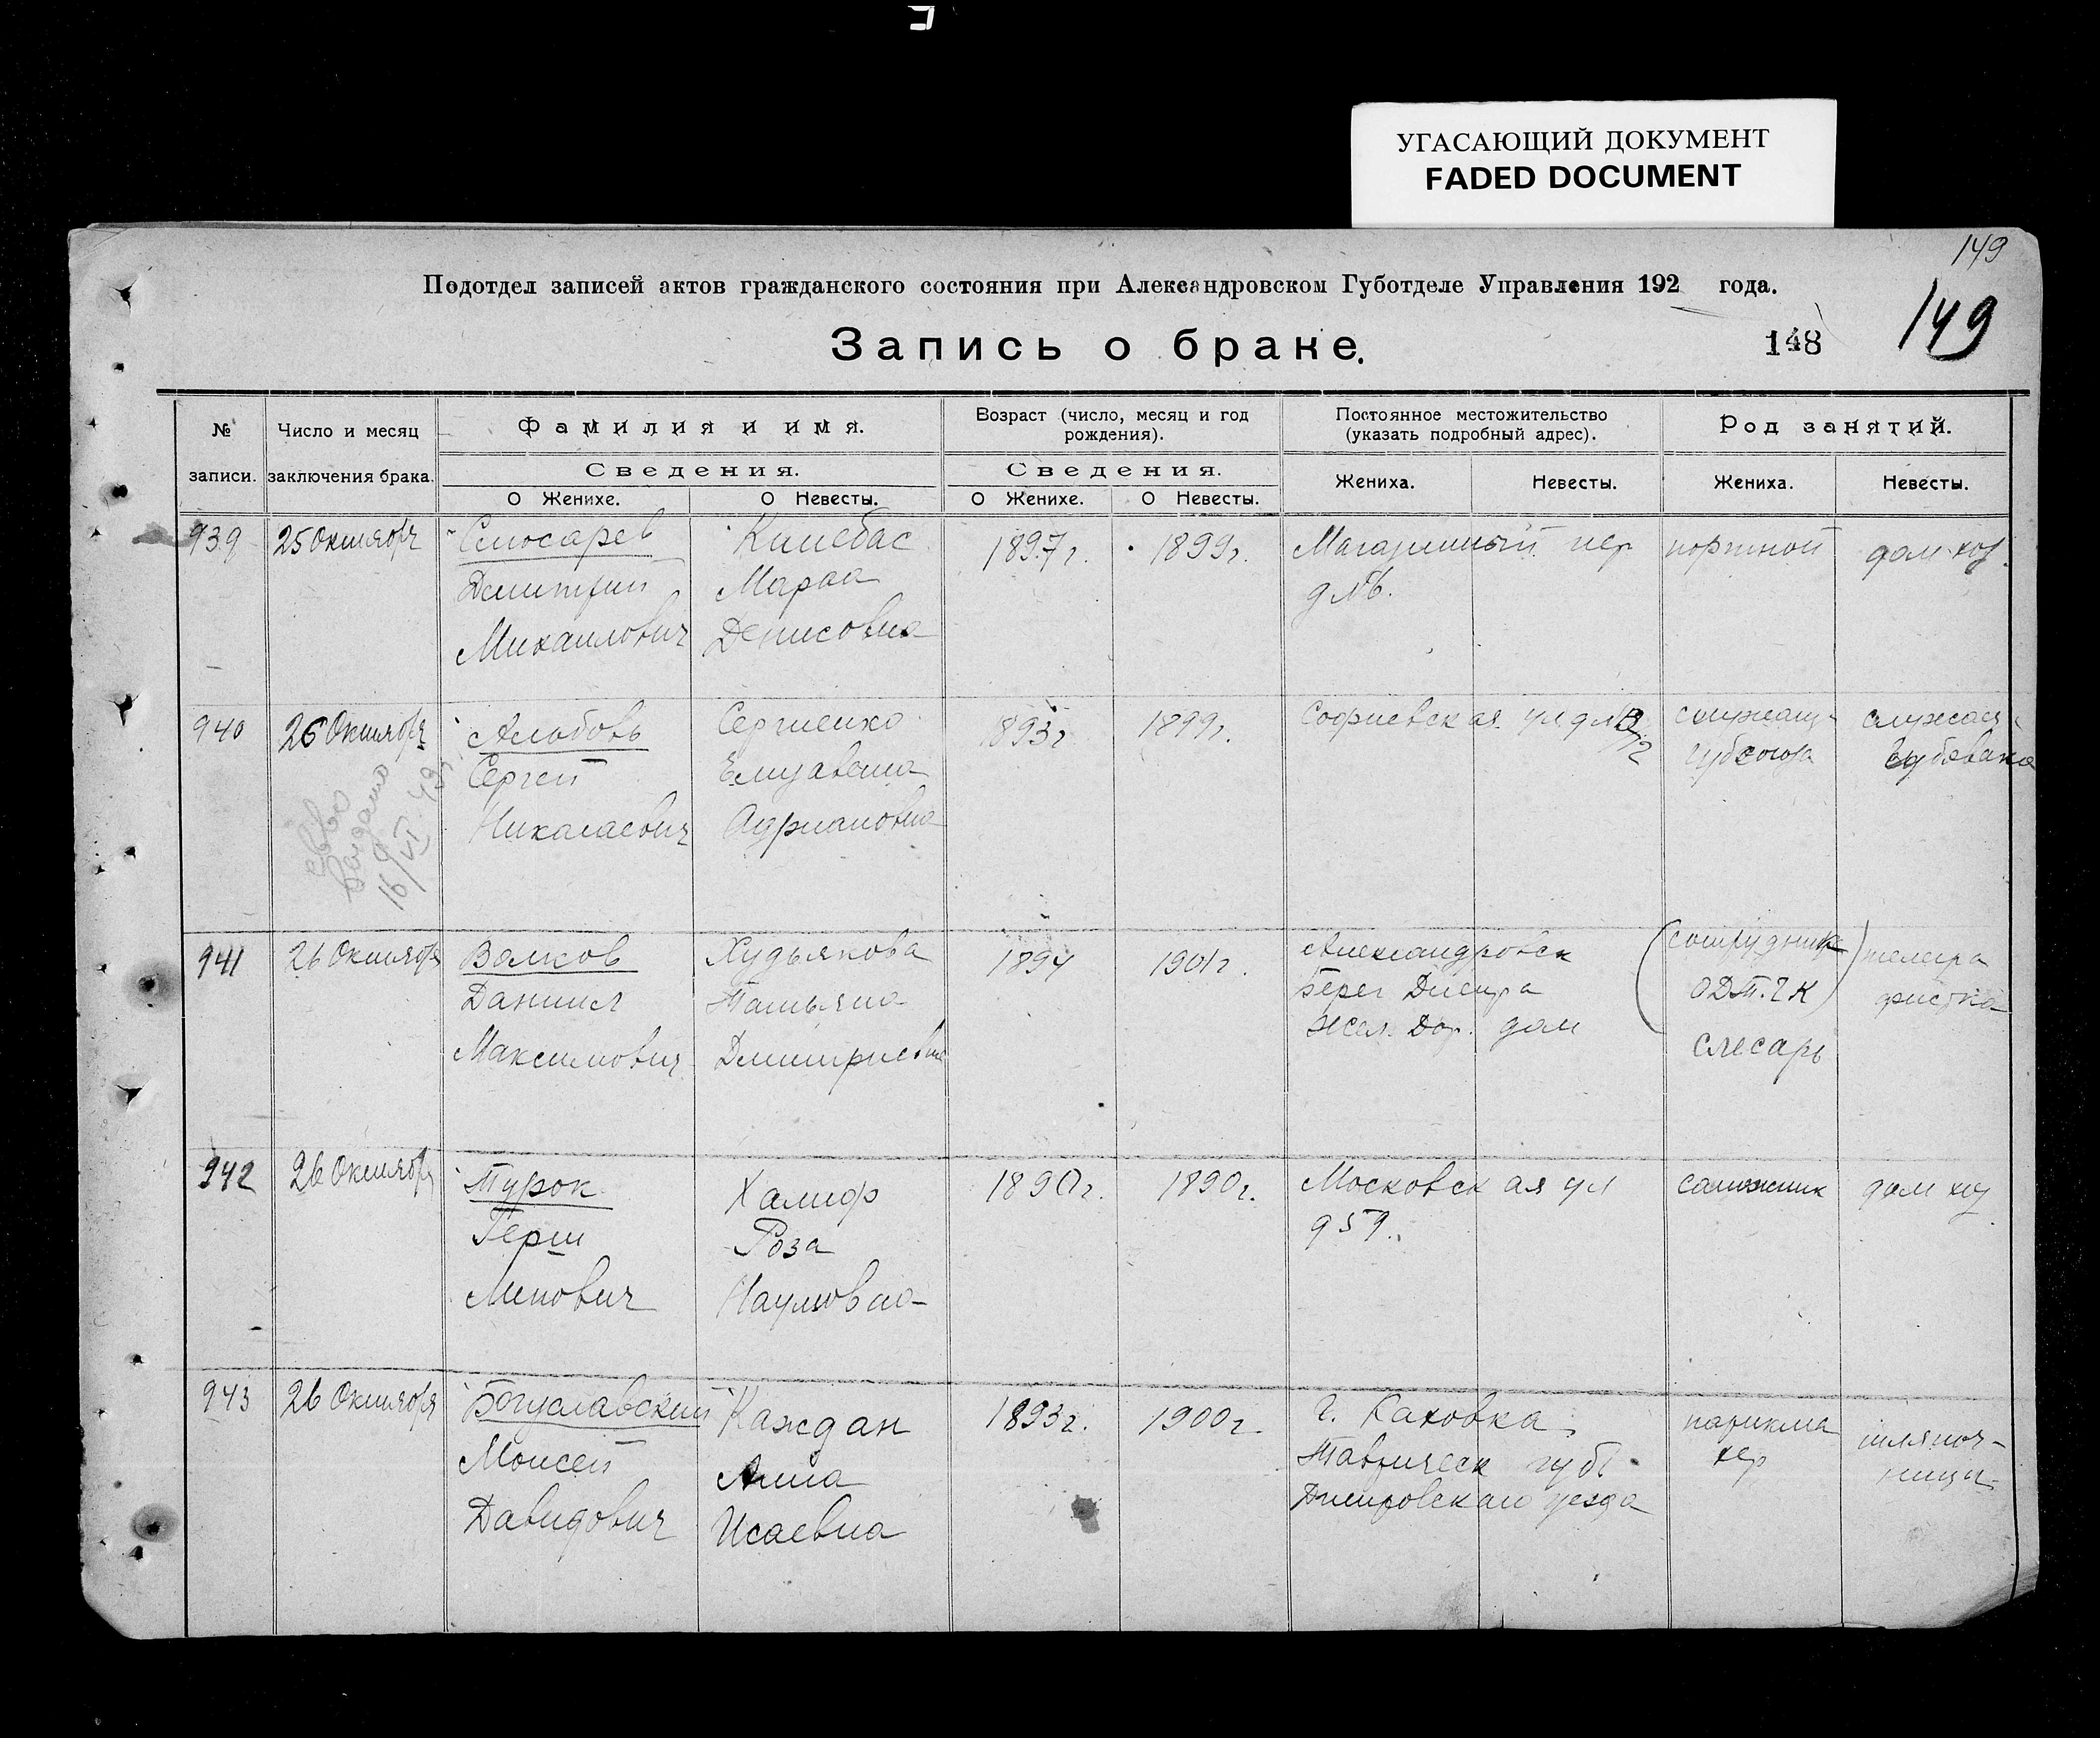 УГАСАЮЩИЙ ДОКУМЕНТ
FADED DOCUMENT
149
Подотдел записей актов гражданского состояния при Александровском Губотделе Управления 192 года.
149
Запись о браке.
148
№ записи.
Число и месяц заключения брака.
Фамилия и имя.
Возраст (число, месяц и год рождения).
Постоянное местожительство (указать подробный адрес).
Род занятий.
Сведения.
Сведения.
О Женихе.
О Невесты.
О Женихе.
О Невесты.
Жениха.
Невесты.
Жениха.
Невесты.
939
25 Октября
Слюсарев
Дмитрий
Михайлович
Марфа
Денисовна
1897 г.
1899 г.
пер
портной
дом хоз.
940
26 Октября
Сергей
Николаевич
Сергиенко
Елизавета
Адриановна
1893 г
1899 г.
Софиевская ул д №
служащ.
Губсоюза
941
26 Октября
Волков
Даниил
Максимович
Худьякова
Татьяна
Дмитриевна
1894
1901 г.
Александровск
Берег Днепра
Жел. Дор. дом
(сотрудник
ОДТ.ЧК)
слесарь
телегра
фистка
942
26 Октября
Турок
Герш
Халиф
Роза
Наумовна
1890 г.
1890 г.
Московская ул
д 59.
сапожник
дом хоз
943
26 Октября
Богуславский
Моисей
Давидович
Каждан
Анна
Исаевна
1893 г.
1900 г.
г. Каховка
Таврическ губ.
Днепровскаго уезда
парикма
хер
шляпоч-
ница